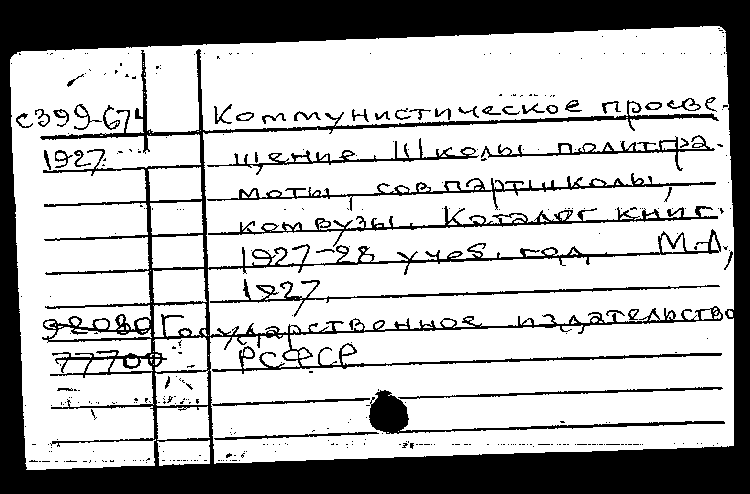 с399-674 Коммунистическое просве-
1927 щение. Школы политгра-
моты, совпартшколы,
комвузы. Каталог книг.
1927-28 учеб. год. М.-Л.,
1927.
92080 Государственное издательство
77700 РСФСР